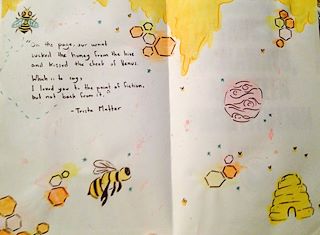 "On the page, our want
sucked the honey from the hive
and kissed the cheek of Venus.
Which is to say,
I loved you to the point of fiction,
but not back from it."
-Trista Mateer